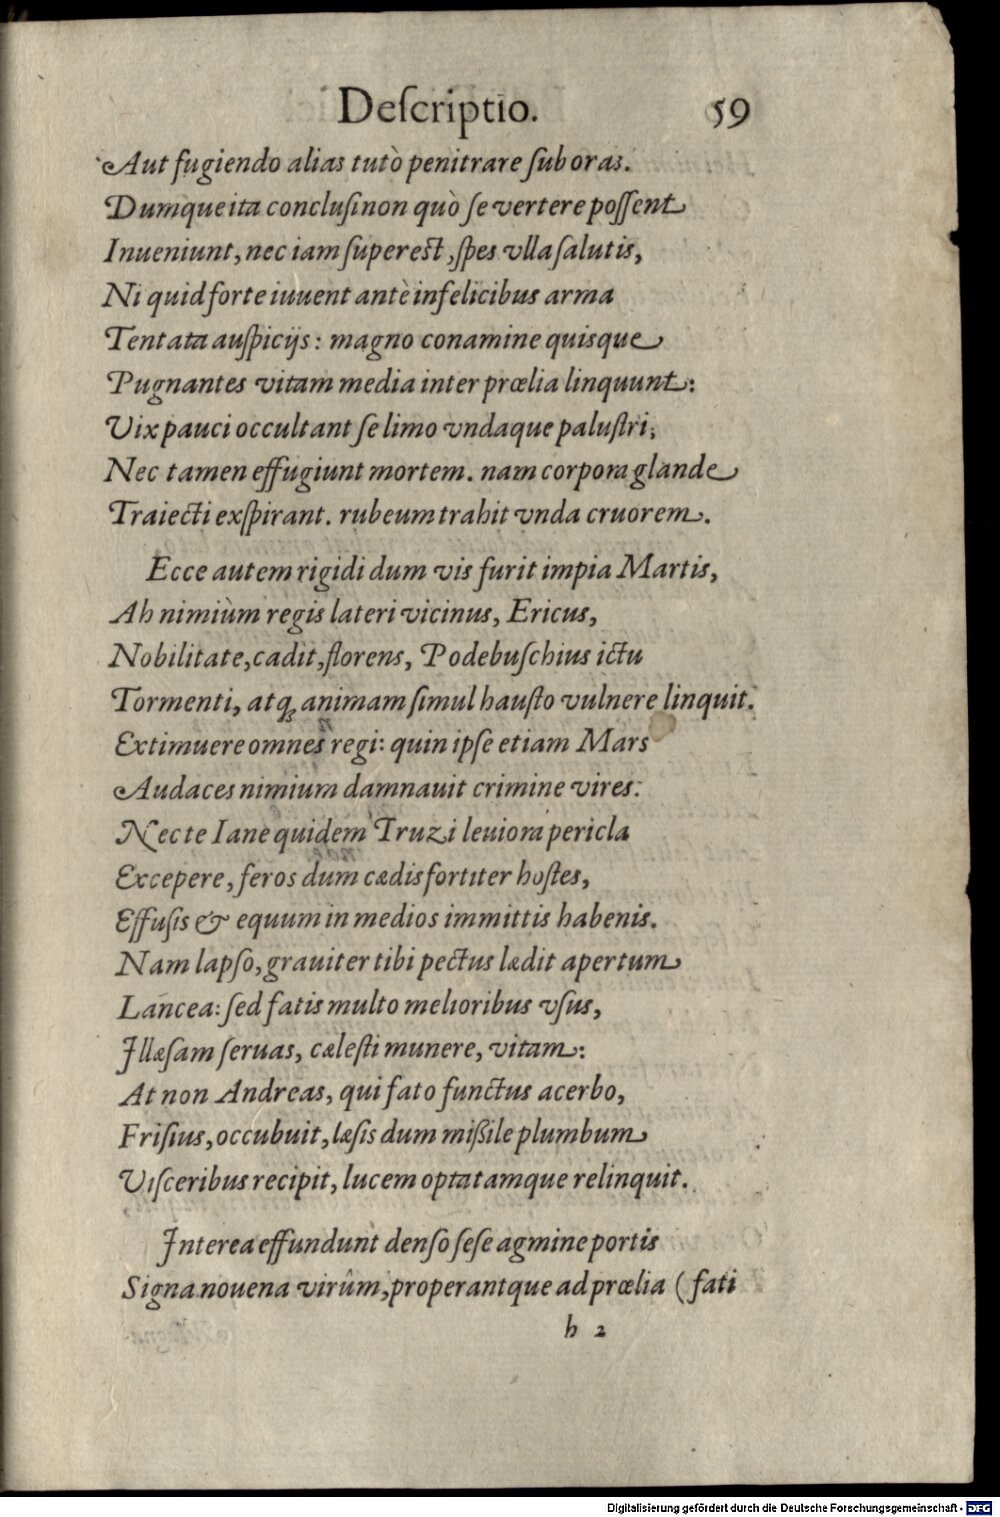 Deſcriptio. 59
Aut fugiendo alias tutò penitrare ſub oras.
Dumque ita concluſi non quò ſe vertere poſſent
Inueniunt, nec iam ſupereſt, ſpes vlla ſalutis,
Ni quid forte iuuent antè infelicibus arma
Tentata auſpicijs: magno conamine quisque
Pugnantes vitam media inter prœlia linquunt:
Vix pauci occultant ſe limo vndaque paluſtri,
Nec tamen effugiunt mortem. nam corpora glande
Traiecti exſpirant. rubeum trahit vnda cruorem.
Ecce autem rigidi dum vis furit impia Martis,
Ah nimiùm regis lateri vicinus, Ericus,
Nobilitate, cadit, florens, Podebuſchius ictu
Tormenti, atq; animam ſimul hauſto vulnere linquit.
Extimuere omnes regi: quin ipſe etiam Mars
Audaces nimium damnauit crimine vires:
Nec te Iane quidem Truzi leuiora pericla
Excepere, feros dum cædis fortiter hoſtes,
Effuſis & equum in medios immittis habenis.
Nam lapſo, grauiter tibi pectus lædit apertum
Lancea: ſed fatis multo melioribus vſus,
Illæſam ſeruas, cæleſti munere, vitam:
At non Andreas, qui fato functus acerbo,
Friſius, occubuit, læſis dum mißile plumbum
Viſceribus recipit, lucem optatamque relinquit.
Interea effundunt denſo ſeſe agmine portis
Signa nouena virûm, properantque ad prœlia (fati
h 2
Digitalisierung gefördert durch die Deutsche Forschungsgemeinschaft - DFG